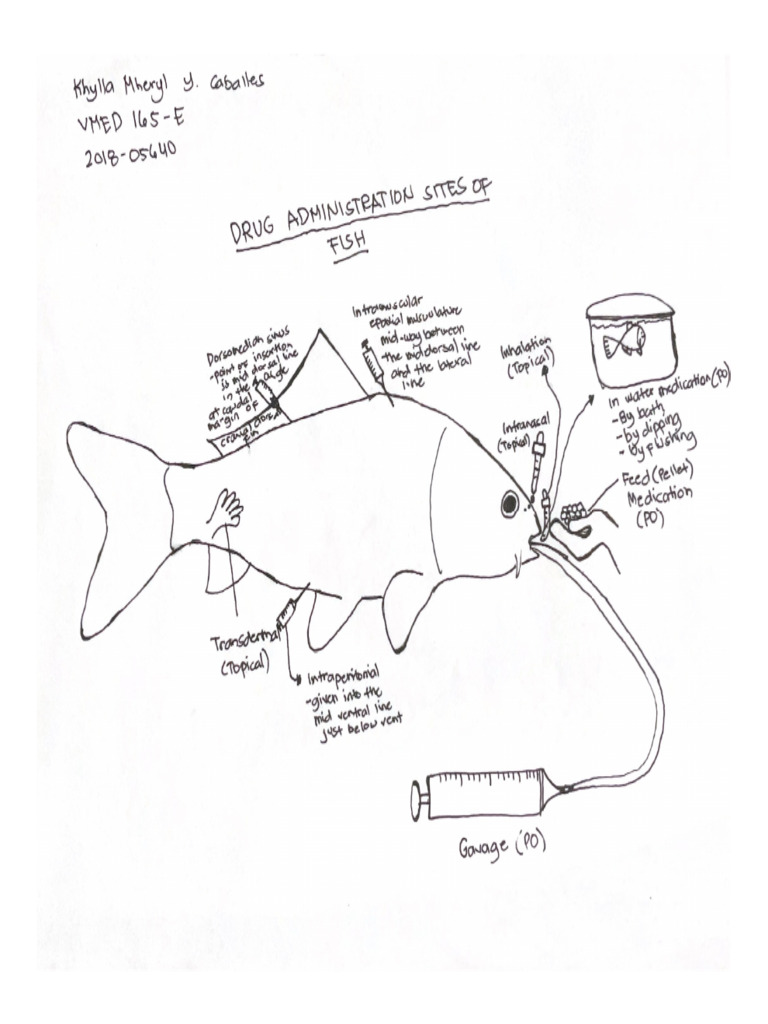 Khylla Mheryl Y. Caballes
VMED 165-E
2018-05640
DRUG ADMINISTRATION SITES OF
FISH
Dorsomedian sinus
-point of insertion
is mid dorsal line
in the
at caudal
margin of
cranial dorsal
fin
Intramuscular
epaxial musculature
mid-way between
the mid dorsal line
and the lateral
line
Inhalation
(Topical)
Intranasal
(Topical)
In water medication (PO)
- By bath
- by dipping
- by flushing
Feed (Pellet)
Medication
(PO)
Transdermal
(Topical)
Intraperitonial
-given into the
mid ventral line
just below vent
Gavage (PO)